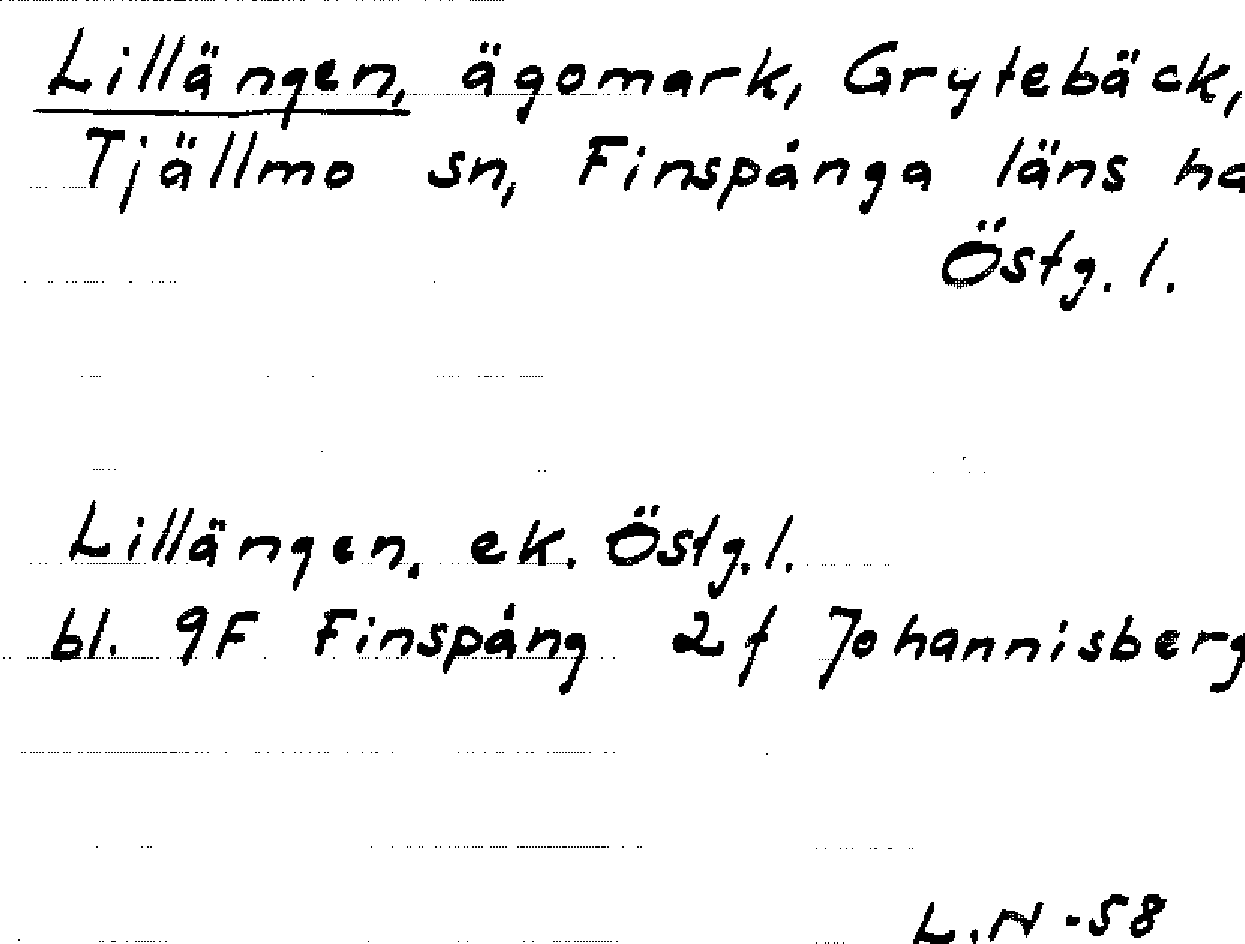 Lillängen, ägomark, Grytebäck,
Tjällmo sn, Finspånga läns ha
Östg. l.
Lillängen. ek. Östg. l.
bl. 9F Finspång 2f Johannisberg
L.N -58